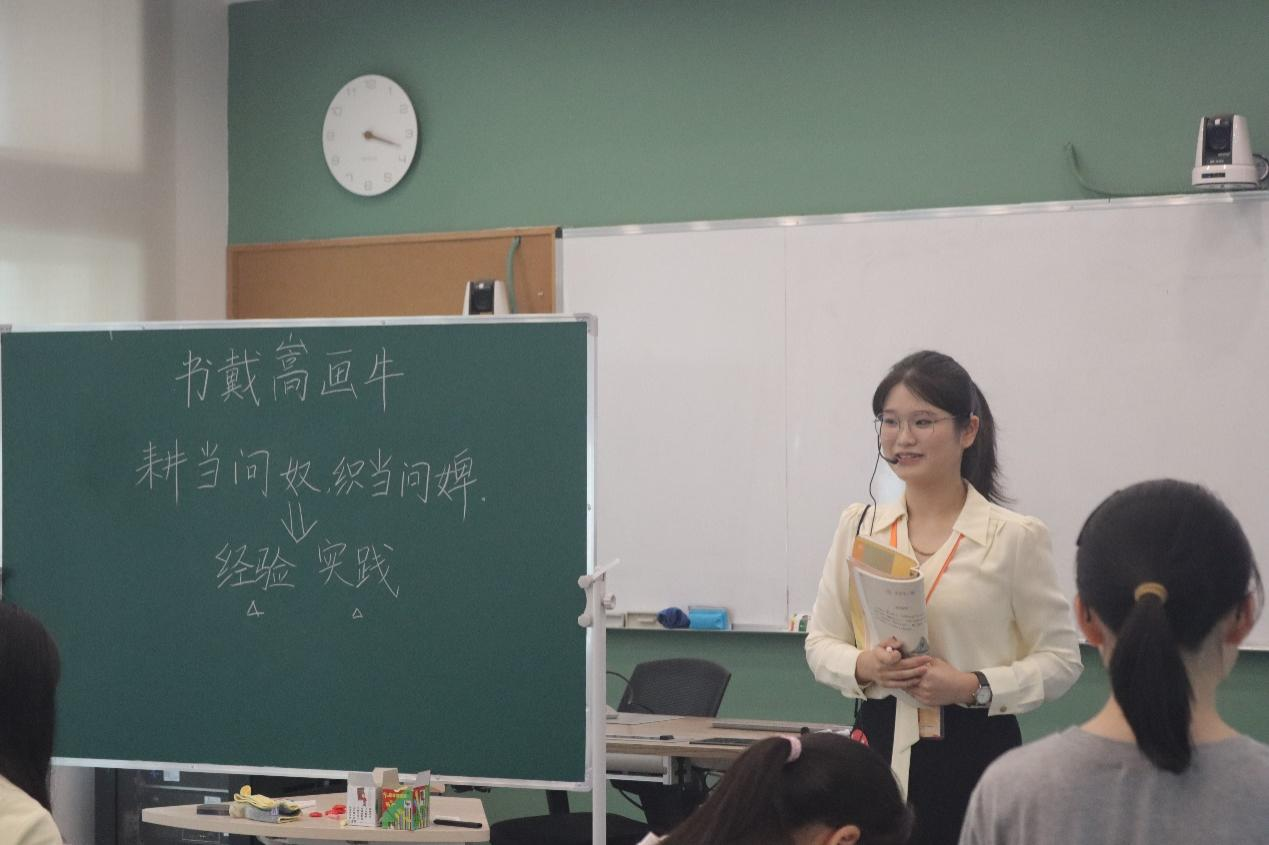 书戴嵩画牛
耕当问奴,织当问婢.
经验 实践